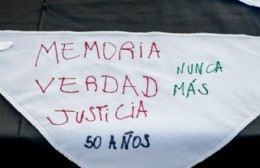 MEMORIA
VERDAD
JUSTICIA
NUNCA
MÁS
50 AÑOS